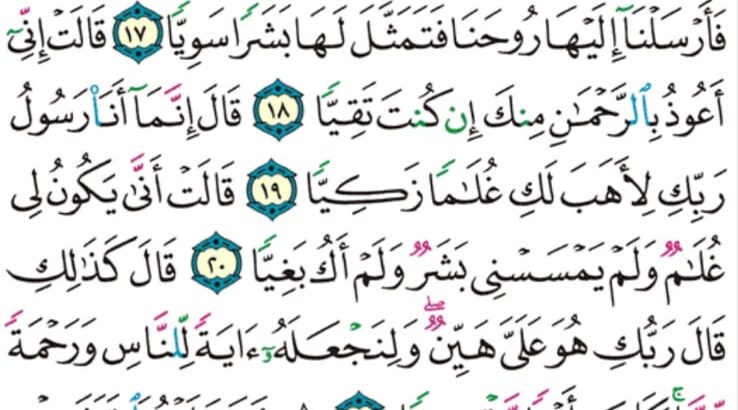 فَأَرْسَلْنَآ إِلَيْهَا رُوحَنَا فَتَمَثَّلَ لَهَا بَشَرًا سَوِيًّا ١٧ قَالَتْ إِنِّىٓ
أَعُوذُ بِٱلرَّحْمَـٰنِ مِنكَ إِن كُنتَ تَقِيًّا ١٨ قَالَ إِنَّمَآ أَنَا۠ رَسُولُ
رَبِّكِ لِأَهَبَ لَكِ غُلَـٰمًا زَكِيًّا ١٩ قَالَتْ أَنَّىٰ يَكُونُ لِى
غُلَـٰمٌ وَلَمْ يَمْسَسْنِى بَشَرٌ وَلَمْ أَكُ بَغِيًّا ٢٠ قَالَ كَذَٰلِكِ
قَالَ رَبُّكِ هُوَ عَلَىَّ هَيِّنٌ ۖ وَلِنَجْعَلَهُۥٓ ءَايَةً لِّلنَّاسِ وَرَحْمَةً